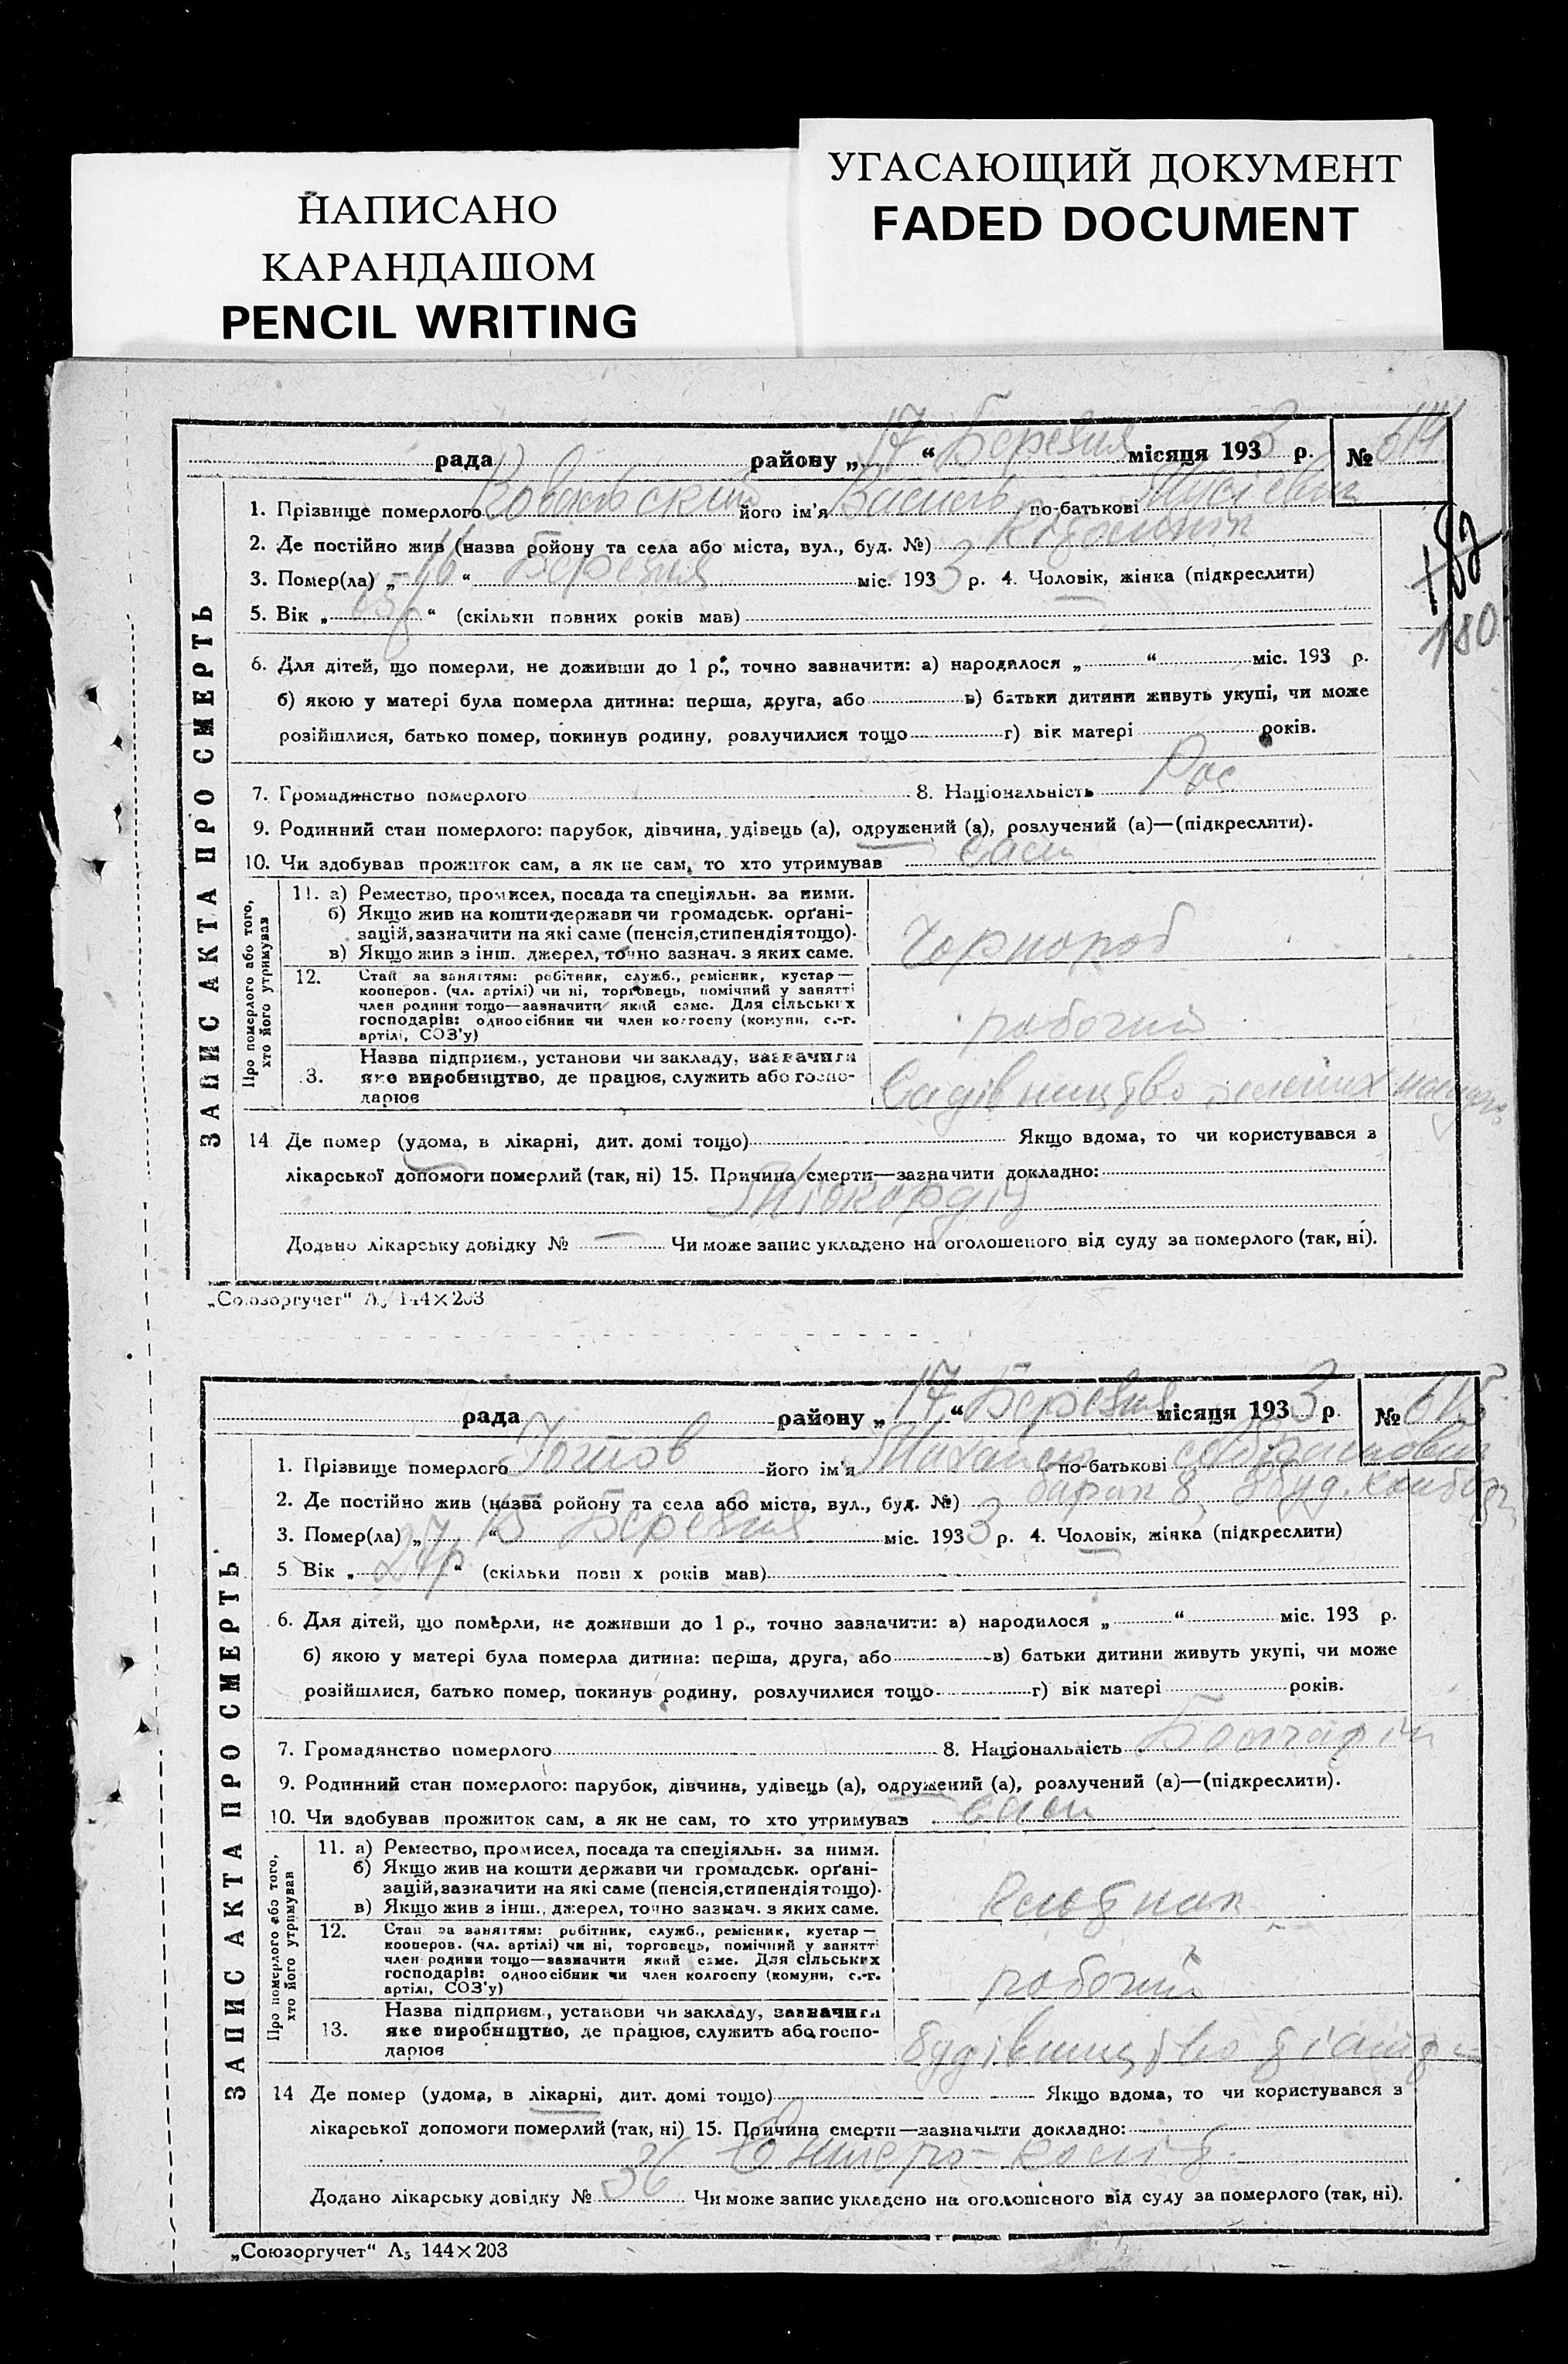 НАПИСАНО
КАРАНДАШОМ
PENCIL WRITING
УГАСАЮЩИЙ ДОКУМЕНТ
FADED DOCUMENT
рада району „ 17 “ Березня місяця 1933 р. № 614
1. Прізвище померлого його ім'я Василь по-батькові
2. Де постійно жив (назва ройону та села або міста, вул., буд. №)
3. Помер(ла) „ 16 “ Березня міс. 1933 р. 4. Чоловік, жінка (підкреслити)
5. Вік „ “ (скільки повних років мав)
82
180
6. Для дітей, що померли, не доживши до 1 р., точно зазначити: а) народилося „ “ міс. 193 р.
б) якою у матері була померла дитина: перша, друга, або в) батьки дитини живуть укупі, чи може
розійшлися, батько помер, покинув родину, розлучилися тощо г) вік матері років.
7. Громадянство померлого 8. Національність Рос
9. Родинний стан померлого: парубок, дівчина, удівець (а), одружений (а), розлучений (а)—(підкреслити).
10. Чи здобував прожиток сам, а як не сам, то хто утримував сам
ЗАПИС АКТА ПРО СМЕРТЬ
Про померлого або того,
хто його утримував
11. а) Ремество, промисел, посада та спеціяльн. за ними.
б) Якщо жив на кошти держави чи громадськ. орґані-
зацій, зазначити на які саме (пенсія, стипендія тощо).
в) Якщо жив з інш. джерел, точно зазнач. з яких саме.
Чорнороб
12. Стан за заняттям: робітник, служб., ремісник, кустар—
кооперов. (чл. артілі) чи ні, торговець, помічний у занятті
член родини тощо—зазначити який саме. Для сільських
господарів: одноосібник чи член колгоспу (комуни, с.-г.
артілі, СОЗ'у)
робочий
3. Назва підприєм., установи чи закладу, зазначити
яке виробництво, де працює, служить або госпо-
дарює
Садівництво
14 Де помер (удома, в лікарні, дит. домі тощо) Якщо вдома, то чи користувався з
лікарської допомоги померлий (так, ні) 15. Причина смерти—зазначити докладно:
Міокардіт
Додано лікарську довідку № — Чи може запис укладено на оголошеного від суду за померлого (так, ні).
„Союзоргучет“ А₅ 144×203
рада району „ 17 “ Березня місяця 1933 р. № 615
1. Прізвище померлого його ім'я по-батькові
2. Де постійно жив (назва ройону та села або міста, вул., буд. №) барак 8,
3. Помер(ла) „ 15 “ Березня міс. 1933 р. 4. Чоловік, жінка (підкреслити)
5 Вік „ 27 р “ (скільки повн х років мав)
6. Для дітей, що померли, не доживши до 1 р., точно зазначити: а) народилося „ “ міс. 193 р.
б) якою у матері була померла дитина: перша, друга, або в) батьки дитини живуть укупі, чи може
розійшлися, батько помер, покинув родину, розлучилися тощо г) вік матері років.
7. Громадянство померлого 8. Національність
9. Родинний стан померлого: парубок, дівчина, удівець (а), одружений (а), розлучений (а)—(підкреслити).
10. Чи здобував прожиток сам, а як не сам, то хто утримував сам
ЗАПИС АКТА ПРО СМЕРТЬ
Про померлого або того,
хто його утримував
11. а) Ремество, промисел, посада та спеціяльн. за ними.
б) Якщо жив на кошти держави чи громадськ. орґані-
зацій, зазначити на які саме (пенсія, стипендія тощо).
в) Якщо жив з інш., джерел, точно зазнач. з яких саме.
12. Стан за заняттям: робітник, служб., ремісник, кустар—
кооперов. (чл. артілі) чи ні, торговець, помічний у занятті
член родини тощо—зазначити який саме. Для сільських
господарів: одноосібник чи член колгоспу (комуни, с.-г.
артілі, СОЗ'у)
робочий
13. Назва підприєм., установи чи закладу, зазначити
яке виробництво, де працює, служить або госпо-
дарює
будівництво
14 Де помер (удома, в лікарні, дит. домі тощо) Якщо вдома, то чи користувався з
лікарської допомоги померлий (так, ні) 15. Причина смерти—зазначити докладно:
Ентеро-коліт
Додано лікарську довідку № 36 Чи може запис укладено на оголошеного від суду за померлого (так, ні).
„Союзоргучет“ А₅ 144×203